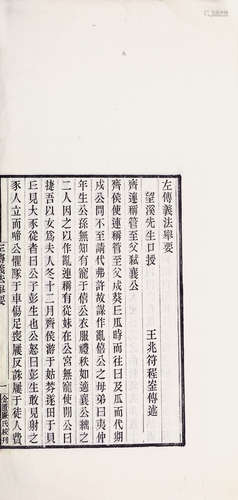 左傳義法舉要
望溪先生口授　王兆符程崟傳述
齊連稱管至父弑襄公
齊侯使連稱管至父戍葵丘瓜時而往曰及瓜而代期
戍公問不至請代弗許故謀作亂僖公之母弟曰夷仲
年生公孫無知有寵于僖公衣服禮秩如適襄公絀之
二人因之以作亂連稱有從妹在公宮無寵使閒公曰
捷吾以女爲夫人冬十二月齊侯游于姑棼遂田于貝
丘見大豕從者曰公子彭生也公怒曰彭生敢見射之
豕人立而啼公懼隊于車傷足喪屨反誅屨于徒人費
左傳義法舉要
一